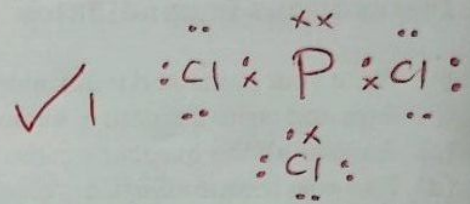 ✓ 1 Cl P Cl
Cl